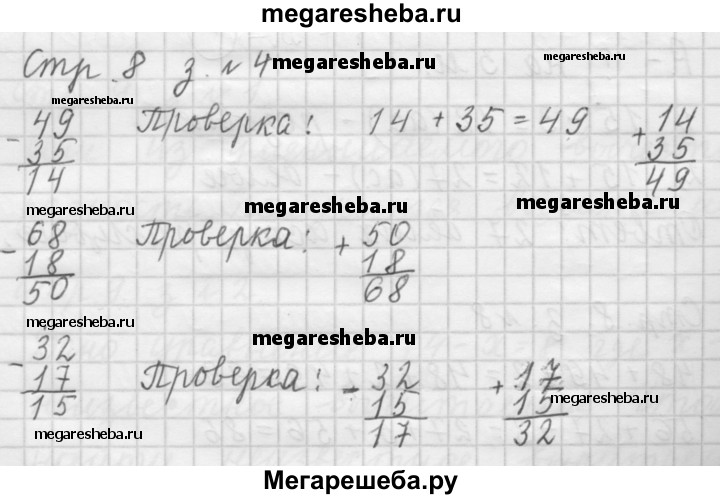 megaresheba.ru
Стр. 8 з. № 4 megaresheba.ru megaresheba.ru
megaresheba.ru
- 49 Проверка: 14 + 35 = 49 + 14
35 35
14 49
megaresheba.ru megaresheba.ru megaresheba.ru
- 68 Проверка: + 50
18 18
50 68
megaresheba.ru
- 32 Проверка: - 32 + 17
17 15 15 megaresheba.ru
15 17 32
megaresheba.ru
Мегарешеба.ру